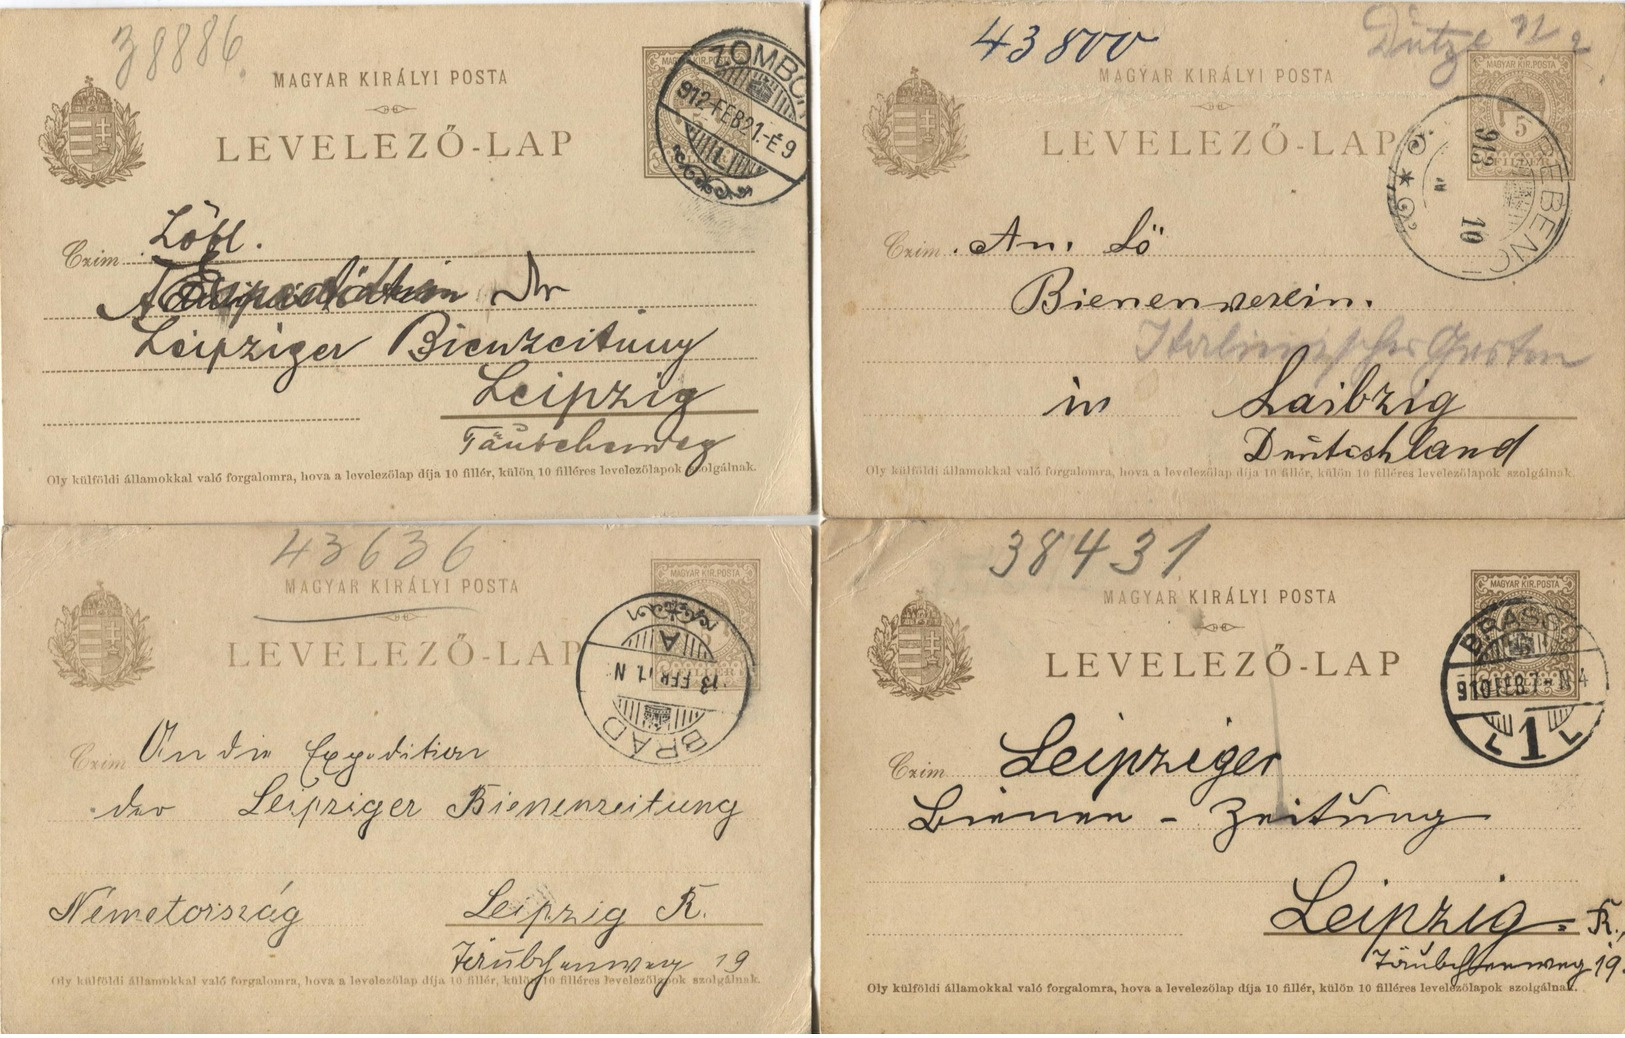 38886
MAGYAR KIRÁLYI POSTA
LEVELEZŐ-LAP
MAGYAR KIR. POSTA
ZOMBOR
912 FEB 21.-É 9
Löbl.
Czim
der
Leipziger Bienzeitung
Leipzig
Täubchenweg
Oly külföldi államokkal való forgalomra, hova a levelezőlap díja 10 fillér, külön 10 filléres levelezőlapok szolgálnak.
43800
MAGYAR KIRÁLYI POSTA
LEVELEZŐ-LAP
MAGYAR KIR. POSTA
5
FILLÉR
913
10
Czim An. Lö
Bienenverein.
in Laibzig
Deutschland
Oly külföldi államokkal való forgalomra, hova a levelezőlap díja 10 fillér, külön 10 filléres levelezőlapok szolgálnak.
43636
MAGYAR KIRÁLYI POSTA
LEVELEZŐ-LAP
MAGYAR KIR. POSTA
BRAD
A
Czim An die Expedition
der Leipziger Bienenzeitung
Németország Leipzig R.
Täubchenweg 19
Oly külföldi államokkal való forgalomra, hova a levelezőlap díja 10 fillér, külön 10 filléres levelezőlapok szolgálnak.
38431
MAGYAR KIRÁLYI POSTA
LEVELEZŐ-LAP
MAGYAR KIR. POSTA
BRASSÓ
910 FEB 7-N 4
1
Czim Leipziger
Bienen - Zeitung
Leipzig = R.,
Täubchenweg 19.
Oly külföldi államokkal való forgalomra, hova a levelezőlap díja 10 fillér, külön 10 filléres levelezőlapok szolgálnak.